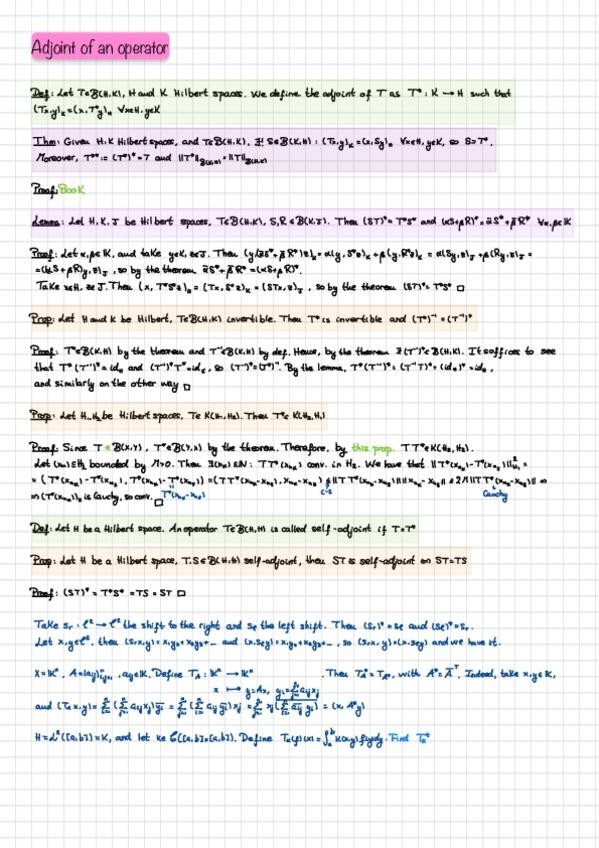 Adjoint of an operator
Def: Let T∈B(H,K), H and K Hilbert spaces. We define the adjoint of T as T*: K → H such that
(Tx,y)_K = (x,T*y)_H ∀x∈H, y∈K
Thm: Given H,K Hilbert spaces, and T∈B(H,K), ∃! S∈B(K,H): (Tx,y)_K = (x,Sy)_H ∀x∈H, y∈K, so S=T*.
Moreover, T** := (T*)* = T and ||T*||_B(K,H) = ||T||_B(H,K)
Proof: BOOK
Lemma: Let H,K,J be Hilbert spaces, T∈B(H,K), S,R∈B(K,J). Then (ST)* = T*S* and (αS+βR)* = ᾱS*+β̄R* ∀α,β∈K
Proof: Let α,β∈K, and take y∈K, z∈J. Then (y,(ᾱS*+β̄R*)z)_K = α(y,S*z)_K + β(y,R*z)_K = α(Sy,z)_J + β(Ry,z)_J =
= ((αS+βR)y,z)_J, so by the theorem ᾱS*+β̄R* = (αS+βR)*.
Take x∈H, z∈J. Then (x,T*S*z)_H = (Tx,S*z)_K = (STx,z)_J, so by the theorem (ST)* = T*S* □
Prop: Let H and K be Hilbert, T∈B(H,K) invertible. Then T* is invertible and (T*)⁻¹ = (T⁻¹)*
Proof: T*∈B(K,H) by the theorem and T⁻¹∈B(K,H) by def. Hence, by the theorem ∃(T⁻¹)*∈B(H,K). It suffices to see
that T*(T⁻¹)* = id_H and (T⁻¹)*T* = id_K, so (T⁻¹)* = (T*)⁻¹. By the lemma, T*(T⁻¹)* = (T⁻¹T)* = (id_H)* = id_H,
and similarly on the other way □
Prop: Let H₁,H₂ be Hilbert spaces, T∈K(H₁,H₂). Then T*∈K(H₂,H₁)
Proof: Since T∈B(X,Y), T*∈B(Y,X) by the theorem. Therefore, by this prop. TT*∈K(H₂,H₂).
Let (xₙ)⊆H₂ bounded by M>0. Then ∃(nₖ)⊆ℕ: TT*(xₙₖ) conv. in H₂. We have that
⇒ (T*(xₙₖ))ₖ is Cauchy, so conv. □
C-S
Cauchy
Def: Let H be a Hilbert space. An operator T∈B(H,H) is called self-adjoint if T=T*
Prop: Let H be a Hilbert space, T,S∈B(H,H) self-adjoint, then ST is self-adjoint ⇔ ST=TS
Proof: (ST)* = T*S* = TS = ST □
Take Sᵣ: ℓ² → ℓ² the shift to the right and Sₗ the left shift. Then (Sᵣ)* = Sₗ and (Sₗ)* = Sᵣ.
Let x,y∈ℓ², then (Sᵣx,y) = x₁y₂+x₂y₃+... and (x,Sₗy) = x₁y₂+x₂y₃+..., so (Sᵣx,y) = (x,Sₗy) and we have it.
X=Kⁿ, A=(aᵢⱼ)ⁿᵢ,ⱼ₌₁, aᵢⱼ∈K. Define T_A: Kⁿ → Kⁿ . Then T_A* = T_A*, with A* = Āᵀ. Indeed, take x,y∈K,
x ↦ y=Ax, yᵢ=Σaᵢⱼxⱼ
H=L²([a,b])=K, and let k∈C([a,b]×[a,b]). Define T_K(f)(x) = ∫ₐᵇ K(x,y)f(y)dy. Find T_K*